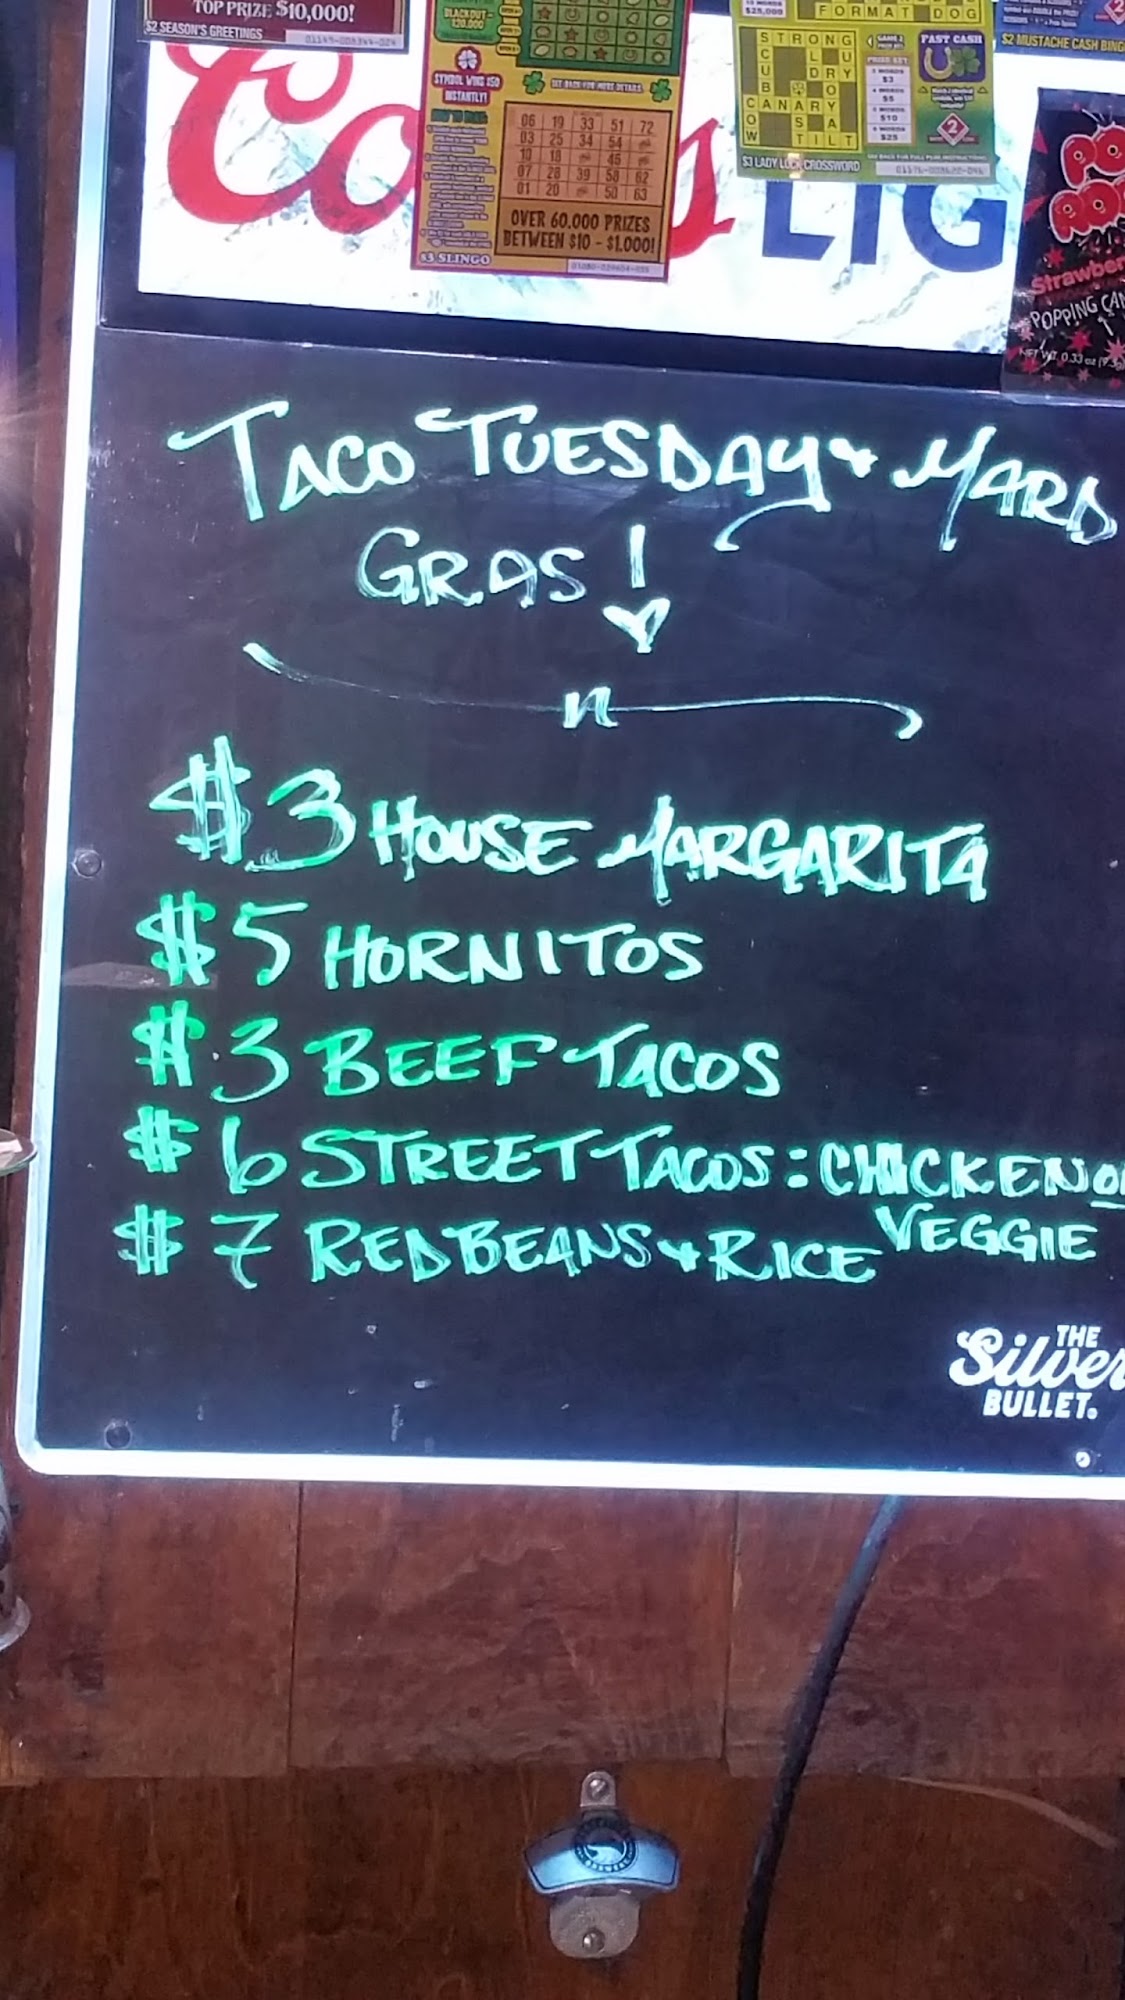 TOP PRIZE $10,000!
$2 SEASON'S GREETINGS
BLACKOUT -
SYMBOL WINS $50
INSTANTLY!
SEE BACK FOR MORE DETAILS
06 19 33 51 72
03 25 34 54
10 18 45
07 28 39 58 62
01 20 50 63
OVER 60,000 PRIZES
BETWEEN $10 - $1,000!
$3 SLINGO
$25,000
FORMAT DOG
STRONG
CANARY
TILT
FAST CASH
$3
$5
$10
$25
$3 LADY LUCK CROSSWORD
$2 MUSTACHE CASH BING
Co s LIG
Strawber
POPPING CAN
NET WT. 0.33 oz
TACO TUESDAY & MARD
GRAS!
$3 HOUSE MARGARITA
$5 HORNITOS
$3 BEEF TACOS
$6 STREET TACOS: CHICKEN
VEGGIE
$7 RED BEANS & RICE
THE
Silver
BULLET.